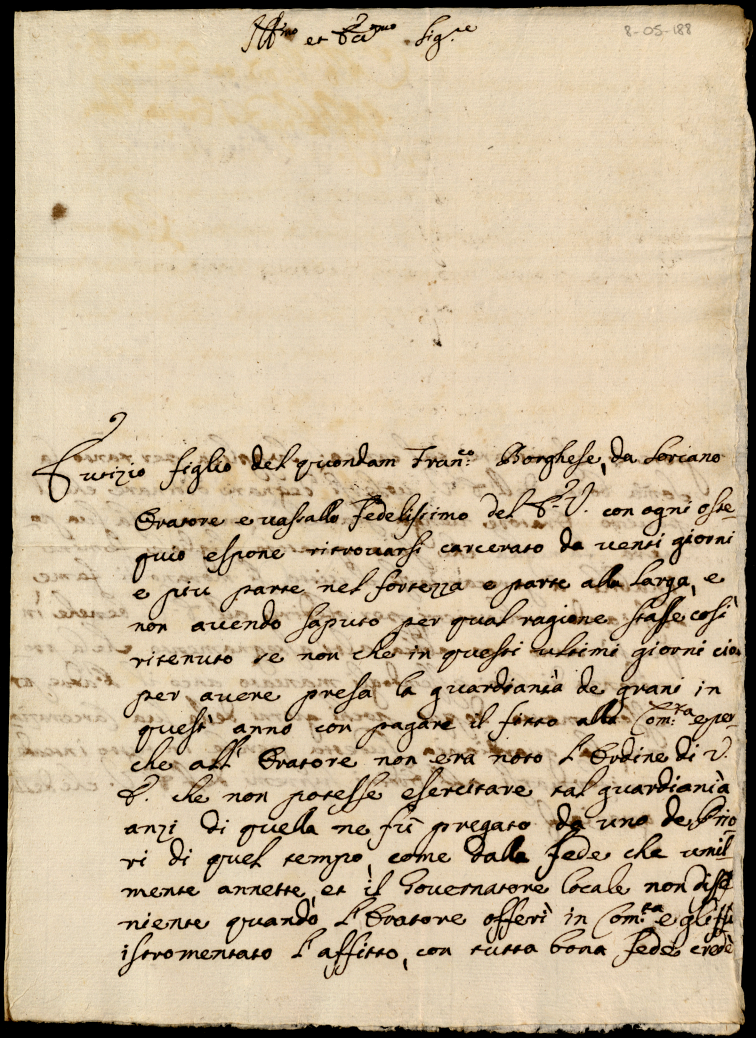 Ill.mo et Ecc.mo Sig.re
8-05-188
Eutizio figlio del quondam Fran.co Borghese, da Soriano
Oratore e vassallo Fedelissimo del E. V. con ogni osse-
quio espone ritrovarsi carcerato da venti giorni
e piu parte nel fortezza e parte alla larga, e
non avendo saputo per qual ragione stasse così
ritenuto se non che in questi ultimi giorni cio
per avere presa la guardianià de grani in
quest' anno con pagare il fitto alla Com.ta e per
che all' Oratore non era noto l'Ordine di V.
E. che non potesse esercitare tal guardianià
anzi di quella ne fù pregato da uno de Prio-
ri di quel tempo, come dalla fede che umil-
mente annette, et il Governatore locale non disse
niente quando l'Oratore offerì in Com.ta e gli fù
istromentato l'affitto, con tutta bona fede credè